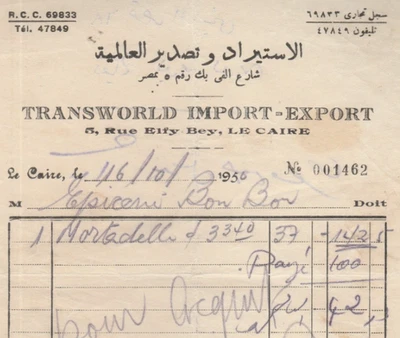 R.C.C. 69833
سجل تجارى ٦٩٨٣٣
Tél. 47849
تليفون ٤٧٨٤٩
الاستيراد وتصدير العالمية
شارع الفى بك رقم ٥ بمصر
TRANSWORLD IMPORT-EXPORT
5, Rue Elfy Bey, LE CAIRE
Le Caire, le 16/10/ 1950 No 001462
M Epicerie Bon Bor Doit
1 Mortadelle 3340 37 142 5
Payé 100
pour acquit 42,5